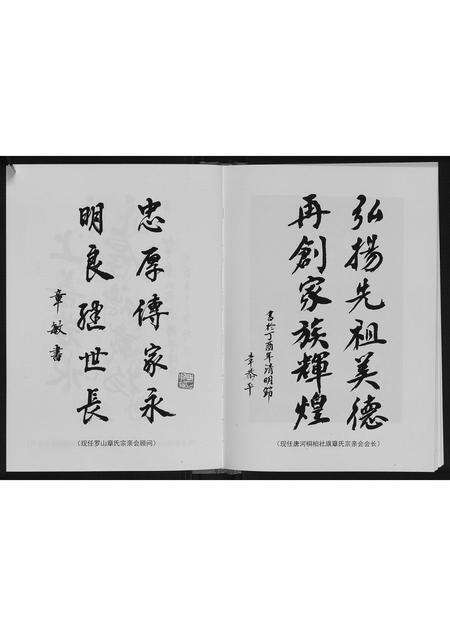 弘揚先祖美德
再創家族輝煌
書於丁酉年清明節
章恭平
（现任唐河桐柏社旗章氏宗亲会会长）
忠厚傳家永
明良继世長
章敏書
（现任罗山章氏宗亲会顾问）